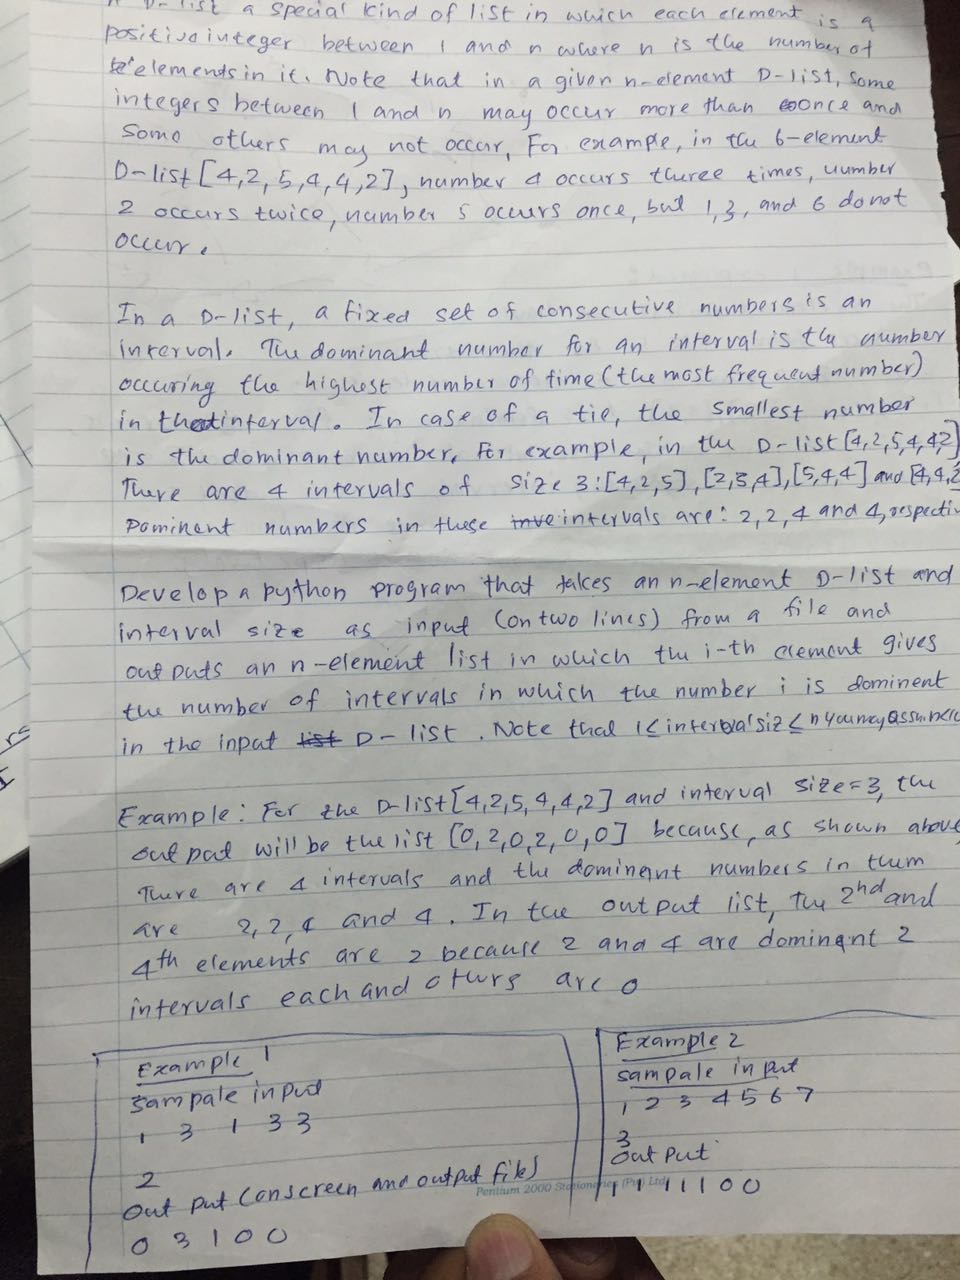 D-list a special kind of list in which each element is a
positive integer between 1 and n where n is the number of
elements in it. Note that in a given n-element D-list, some
integers between 1 and n may occur more than once and
some others may not occur, For example, in the 6-element
D-list [4,2,5,4,4,2], number 4 occurs three times, number
2 occurs twice, number 5 occurs once, but 1,3, and 6 do not
occur.
In a D-list, a fixed set of consecutive numbers is an
interval. The dominant number for an interval is the number
occuring the highest number of time (the most frequent number)
in that interval. In case of a tie, the smallest number
is the dominant number. For example, in the D-list [4,2,5,4,4,2]
There are 4 intervals of size 3: [4,2,5], [2,5,4], [5,4,4] and [4,4,2
Dominent numbers in these intervals are: 2, 2, 4 and 4, respectiv
Develop a python program that takes an n-element D-list and
interval size as input (on two lines) from a file and
out puts an n-element list in which the i-th element gives
the number of intervals in which the number i is dominent
in the input list D-list. Note that 1≤ interval siz ≤ n you may assume
Example: For the D-list [4,2,5,4,4,2] and interval size=3, the
out put will be the list [0,2,0,2,0,0] because, as shown above
There are 4 intervals and the dominant numbers in them
are 2, 2, 4 and 4. In the out put list, the 2nd and
4th elements are 2 because 2 and 4 are dominant 2
intervals each and others are 0
Example 1
sampale input
1 3 1 3 3
2
Out put (on screen and output file)
0 3 1 0 0
Example 2
sampale input
1 2 3 4 5 6 7
3
out put
1 1 1 1 1 0 0
Pentium 2000 Stationeries (Pvt) Ltd